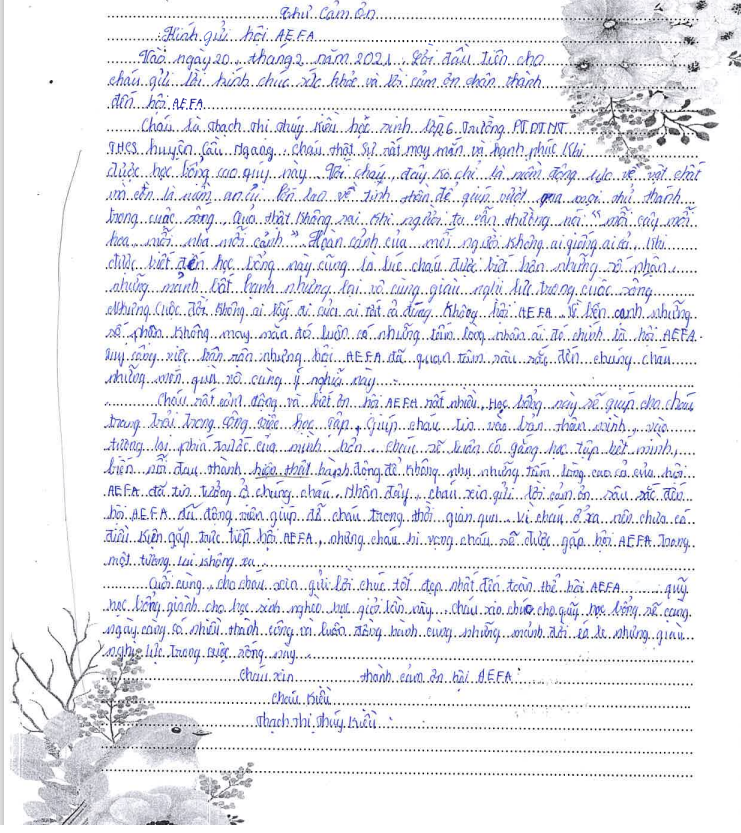 Thư Cảm ơn
Kính gửi hội AEFA
Vào ngày 20, tháng 2 năm 2021. Lời đầu tiên cho
cháu gửi lời kính chúc sức khỏe và lời cảm ơn chân thành
đến hội AEFA
Cháu là Thạch Thị Thúy Kiều học sinh lớp 6 Trường PT.DT.NT
THCS huyện Cầu Ngang. cháu thật sự rất may mắn và hạnh phúc khi
được học bổng cao quý này. Với cháu, đây ko chỉ là nguồn động lực về vật chất
mà còn là niềm an ủi lớn lao về tinh thần để giúp vượt qua mọi thử thách
trong cuộc sống. Quả thật không sai khi người ta vẫn thường nói " mỗi cây mỗi
hoa, mỗi nhà mỗi cảnh ". Hoàn cảnh của mỗi người không ai giống ai cả, khi
được biết đến học bổng này cũng là lúc cháu được biết hơn những số phận,
những mảnh bất hạnh nhưng lại vô cùng giàu nghị lực trong cuộc sống
Nhưng cuộc đời không ai lấy đi của ai tất cả đúng không hội AEFA. Vì bên cạnh những
số phận không may mắn đó luôn có những tấm lòng nhân ái đó chính là hội AEFA.
tuy công việc bận rộn nhưng hội AEFA đã quan tâm sâu sắc đến chúng cháu
những món quà vô cùng ý nghĩa này.
Cháu rất cảm động và biết ơn hội AEFA rất nhiều, Học bổng này sẽ giúp cho cháu
trang trải trong công việc học tập, Giúp cháu tin vào bản thân mình, vào
tương lai phía trước của mình hơn. cháu sẽ luôn cố gắng học tập hết mình,
biến nỗi đau thành hành động để không phụ những tấm lòng cao cả của hội
AEFA đã tin tưởng ở chúng cháu. Nhân đây, cháu xin gửi lời cảm ơn sâu sắc đến
hội AEFA đã động viên giúp đỡ cháu trong thời gian qua. vì cháu ở xa nên chưa có
điều kiện gặp trực tiếp hội AEFA, nhưng cháu hi vọng cháu sẽ được gặp hội AEFA trong
một tương lai không xa.
Cuối cùng, cho cháu xin gửi lời chúc tốt đẹp nhất đến toàn thể hội AEFA quỹ
học bổng giành cho học sinh nghèo học giỏi lần này. cháu xin chúc cho quỹ học bổng sẽ càng
ngày càng có nhiều thành công và luôn đồng hành cùng những mảnh đời những giàu
nghị lực trong cuộc sống này.
Cháu xin thành cảm ơn hội AEFA.
cháu Kiều
Thạch Thị Thúy Kiều